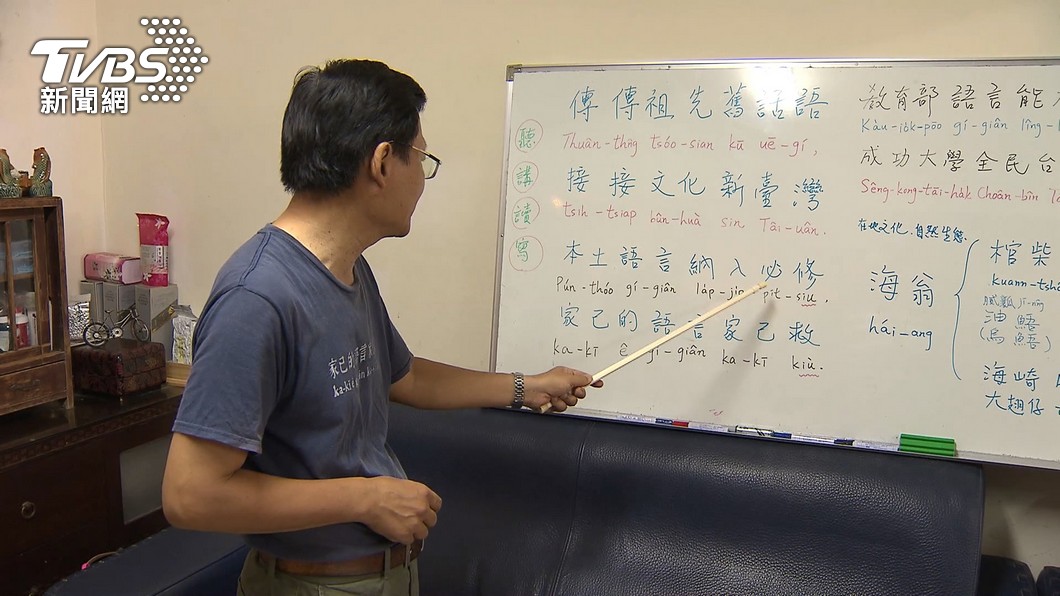 TVBS
新聞網
聽
講
讀
寫
傳傳祖先舊話語
Thuân-thn̂g tsóo-sian kū uē-gí,
接接文化新臺灣
tsih-tsiap bûn-huà sin Tâi-uân.
本土語言納入必修
Pún-thóo gí-giân la̍p-ji̍p pit-siu,
家己的語言家己救
ka-kī ê gí-giân ka-kī kiù.
教育部語言能
Kàu-io̍k-pōo gí-giân lîng-
成功大學全民台
Sêng-kong-tāi-ha̍k Choân-bîn
在地文化.自然生態
海翁
hái-ang
棺柴
kuann-tshâ
油鰡
海崎
大翅仔
家已的
ka-kī